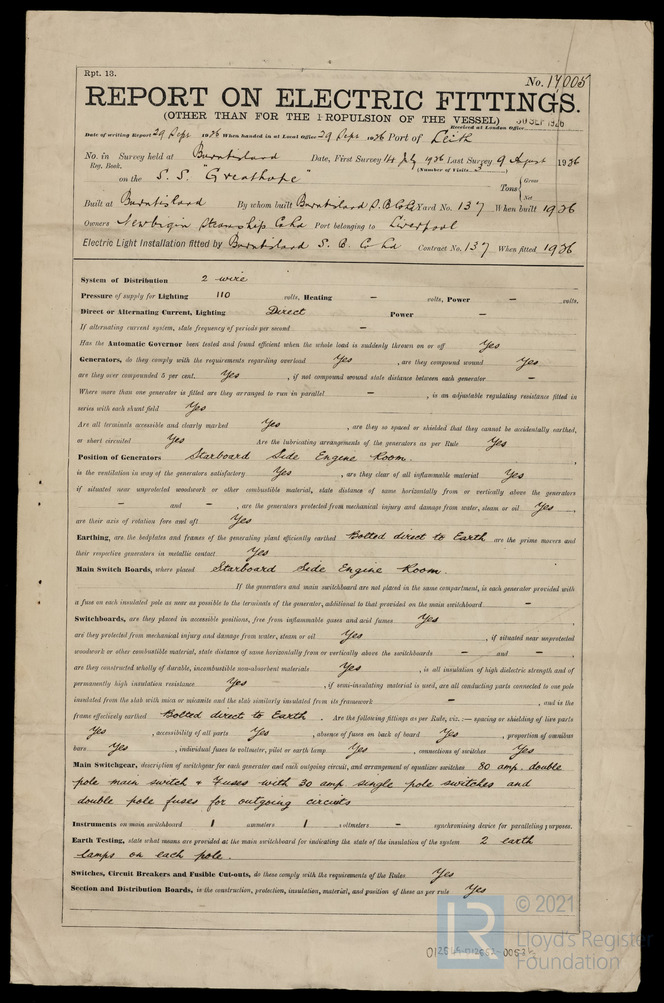 Rpt. 13.
No. 17005
REPORT ON ELECTRIC FITTINGS.
(OTHER THAN FOR THE PROPULSION OF THE VESSEL) 30 SEP 1936
Received at London Office
Date of writing Report 29 Sept 1936 When handed in at Local Office 29 Sept 1936 Port of Leith
No. in Survey held at Burntisland Date, First Survey 14 July 1936 Last Survey 9 August 1936
Reg. Book. (Number of Visits 3)
on the S.S. "Greathope" Tons { Gross
Net
Built at Burntisland By whom built Burntisland S.B. Co Ld Yard No. 137 When built 1936
Owners Newbigin Steamship Co Ld Port belonging to Liverpool
Electric Light Installation fitted by Burntisland S. B. Co Ld Contract No. 137 When fitted 1936
System of Distribution 2 wire
Pressure of supply for Lighting 110 volts, Heating - volts, Power - volts.
Direct or Alternating Current, Lighting Direct Power -
If alternating current system, state frequency of periods per second -
Has the Automatic Governor been tested and found efficient when the whole load is suddenly thrown on or off Yes
Generators, do they comply with the requirements regarding overload Yes, are they compound wound Yes
are they over compounded 5 per cent. Yes, if not compound wound state distance between each generator -
Where more than one generator is fitted are they arranged to run in parallel -, is an adjustable regulating resistance fitted in
series with each shunt field Yes
Are all terminals accessible and clearly marked Yes, are they so spaced or shielded that they cannot be accidentally earthed,
or short circuited Yes Are the lubricating arrangements of the generators as per Rule Yes
Position of Generators Starboard Side Engine Room.
is the ventilation in way of the generators satisfactory Yes, are they clear of all inflammable material Yes
if situated near unprotected woodwork or other combustible material, state distance of same horizontally from or vertically above the generators
- and -, are the generators protected from mechanical injury and damage from water, steam or oil Yes,
are their axis of rotation fore and aft Yes
Earthing, are the bedplates and frames of the generating plant efficiently earthed Bolted direct to Earth are the prime movers and
their respective generators in metallic contact Yes
Main Switch Boards, where placed Starboard Side Engine Room.
If the generators and main switchboard are not placed in the same compartment, is each generator provided with
a fuse on each insulated pole as near as possible to the terminals of the generator, additional to that provided on the main switchboard -
Switchboards, are they placed in accessible positions, free from inflammable gases and acid fumes Yes,
are they protected from mechanical injury and damage from water, steam or oil Yes, if situated near unprotected
woodwork or other combustible material, state distance of same horizontally from or vertically above the switchboards - and -,
are they constructed wholly of durable, incombustible non-absorbent materials Yes, is all insulation of high dielectric strength and of
permanently high insulation resistance Yes, if semi-insulating material is used, are all conducting parts connected to one pole
insulated from the slab with mica or micanite and the slab similarly insulated from its framework -, and is the
frame effectively earthed Bolted direct to Earth. Are the following fittings as per Rule, viz.:— spacing or shielding of live parts
Yes, accessibility of all parts Yes, absence of fuses on back of board Yes, proportion of omnibus
bars Yes, individual fuses to voltmeter, pilot or earth lamp Yes, connections of switches Yes
Main Switchgear, description of switchgear for each generator and each outgoing circuit, and arrangement of equaliser switches 80 amp. double
pole main switch & Fuses with 30 amp single pole switches and
double pole fuses for outgoing circuits
Instruments on main switchboard 1 ammeters 1 voltmeters - synchronising device for paralleling purposes.
Earth Testing, state what means are provided at the main switchboard for indicating the state of the insulation of the system 2 earth
lamps on each pole.
Switches, Circuit Breakers and Fusible Cut-outs, do these comply with the requirements of the Rules Yes
Section and Distribution Boards, is the construction, protection, insulation, material, and position of these as per rule Yes
LR
© 2021
Lloyd's Register
Foundation